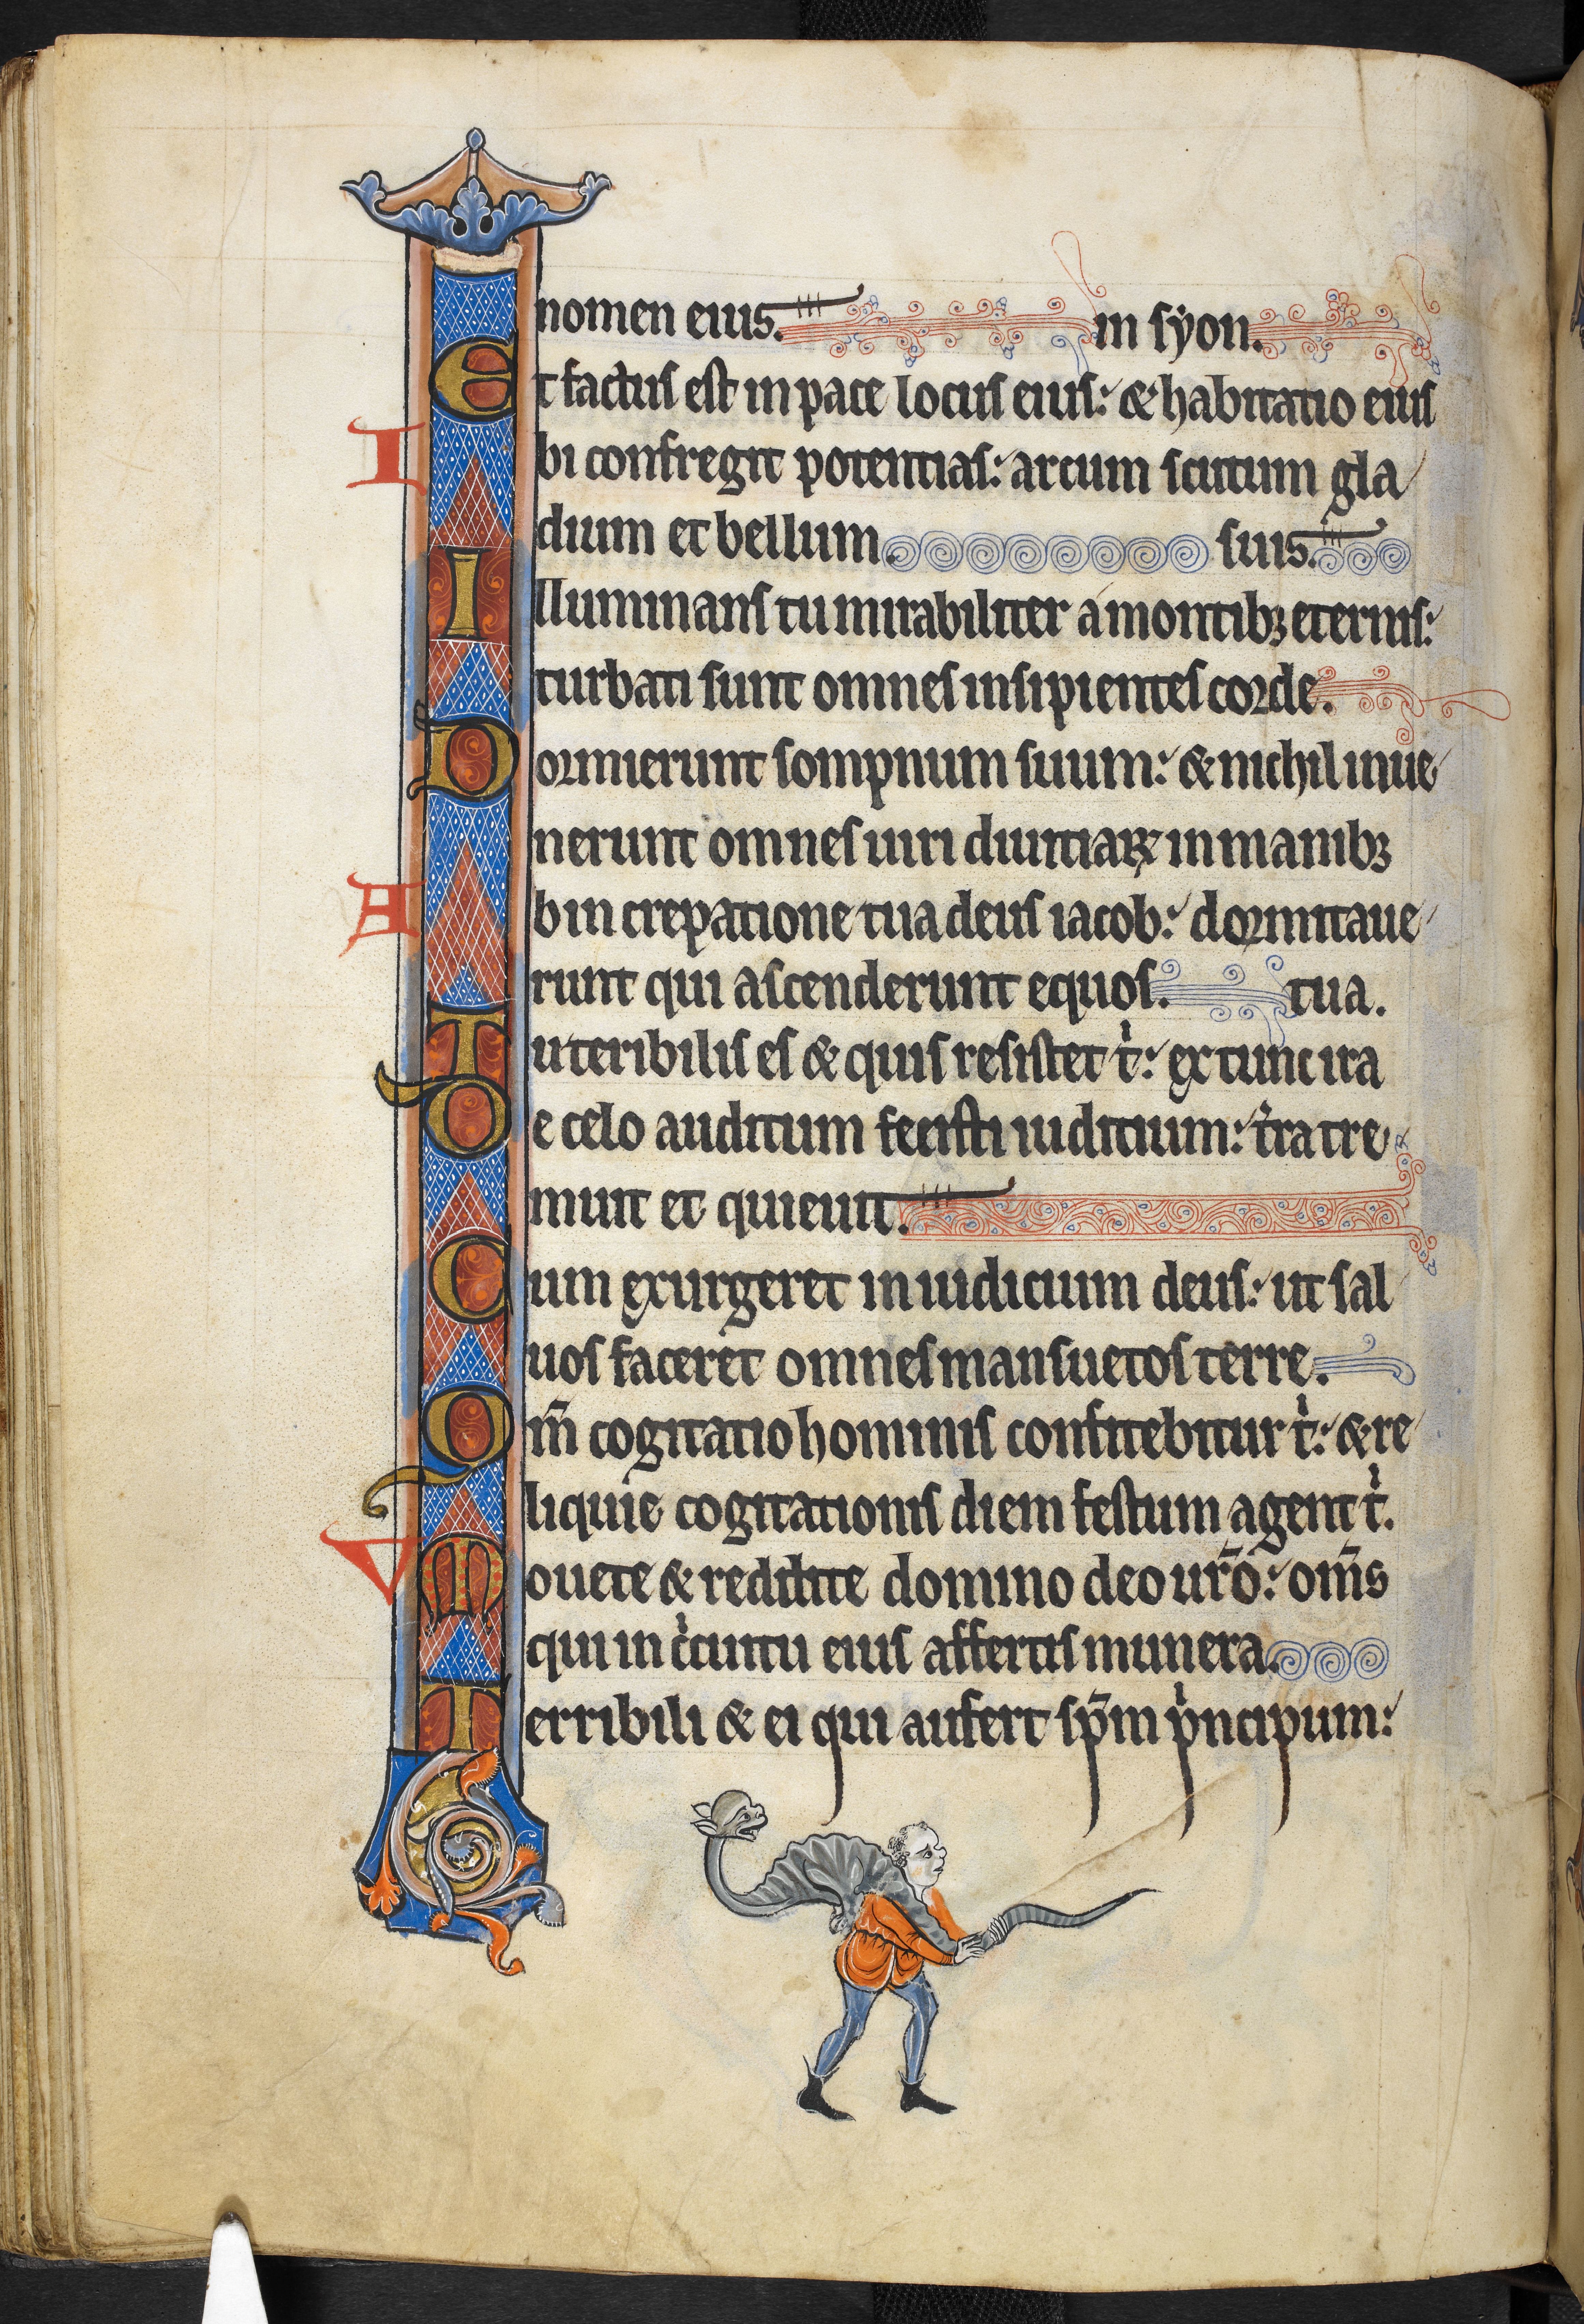 nomen eius. in syon.
Et factus est in pace locus eius: & habitatio eius
Ibi confregit potentias: arcum scutum gla
dium et bellum. suis.
Illuminans tu mirabiliter a montibꝫ eternis:
turbati sunt omnes insipientes corde.
Dormierunt sompnum suum: & nichil inue
nerunt omnes uiri diuitiaꝝ in manibꝫ
Ab increpatione tua deus iacob: dormitaue
runt qui ascenderunt equos. tua.
Tu teribilis es & quis resistet t̍: ex tunc ira
De celo auditum fecisti iuditium: t̍ra tre
muit et quieuit.
Cum exurgeret in iudicium deus: ut sal
uos faceret omnes mansuetos terre.
Qm̅ cogitatio hominis confitebitur t̍: & re
liquie cogitationis diem festum agent t̍.
Vouete & reddite domino deo ur̅o: om̅s
qui in c̍cuitu eius affertis munera.
Terribili & ei qui aufert sp̅m p̍ncipum: